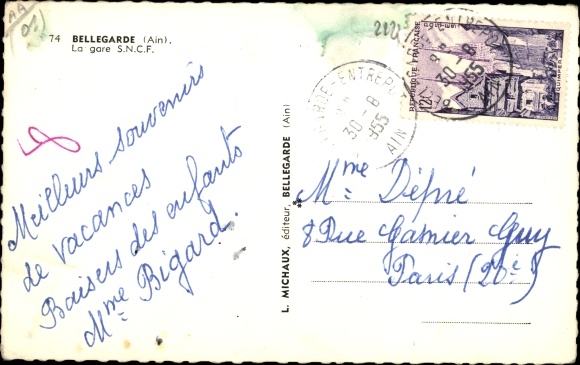 AA
01)
74 BELLEGARDE (Ain).
La gare S.N.C.F.
Meilleurs souvenirs
de vacances
Baisers des enfants
Mme Bigard.
L. MICHAUX, éditeur, BELLEGARDE (Ain)
30-8
1955
AIN
30-8
1955
REPUBLIQUE FRANÇAISE
12F
QUIMPER
Mme Dépré
8 Rue Garnier Guy
Paris (20e)